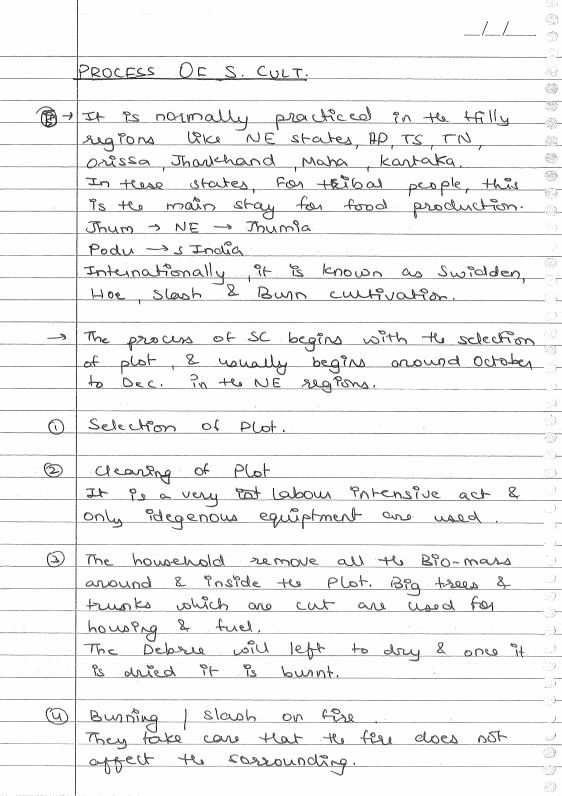 __/__/__
PROCESS OF S. CULT.
→ It is normally practiced in the tfilly
regions like NE states, AP, TS, TN,
Orissa, Jharkhand, Maha, Kantaka.
In these states, For tribal people, this
is the main stay for food production.
Jhum → NE → Jhumia
Podu → S India
Internationally, it is known as Swidden,
Hoe, Slash & Burn cultivation.
→ The process of SC begins with the selection
of plot, & usually begins around October
to Dec. in the NE regions.
① Selection of Plot.
② Clearing of Plot
It is a very labour intensive act &
only idegenous equiptment are used.
③ The household remove all the Bio-mass
around & inside the Plot. Big trees &
trunks which are cut are used for
housing & fuel.
The Debree will left to dry & once it
is dried it is burnt.
④ Burning / slash on fire.
They take care that the fire does not
affect the sorrounding.